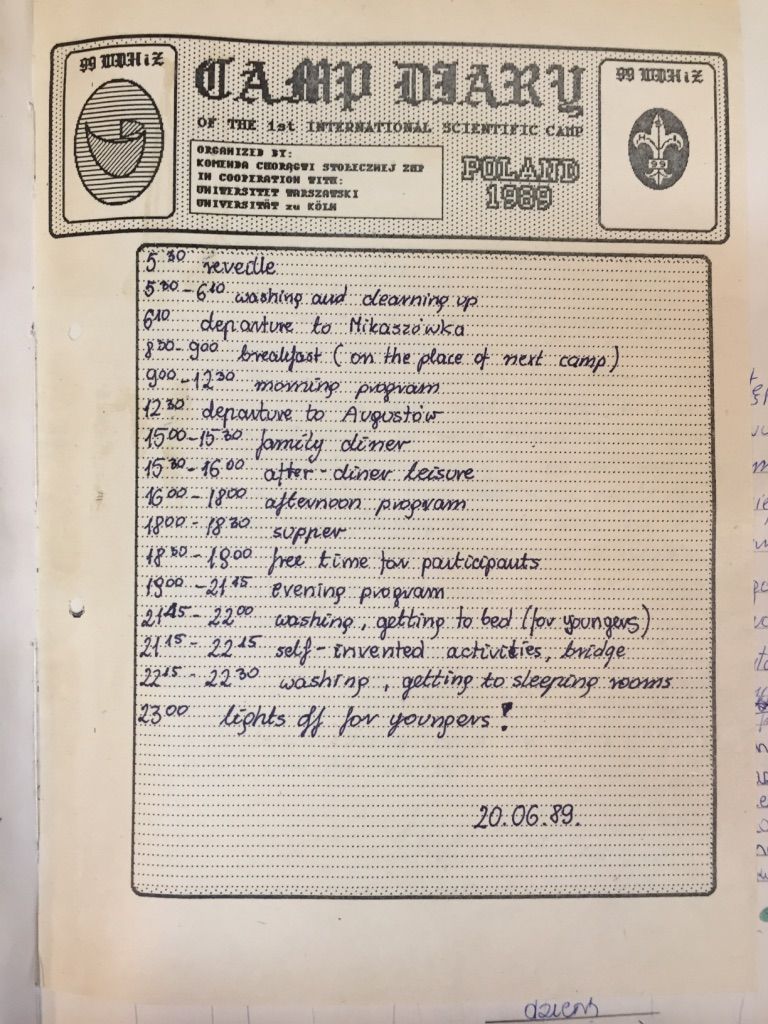 99 WDHiZ
CAMP DIARY
99 WDHiZ
OF THE 1st INTERNATIONAL SCIENTIFIC CAMP
ORGANIZED BY:
KOMENDA CHORĄGWI STOŁECZNEJ ZHP
IN COOPERATION WITH:
UNIWERSITET WARSZAWSKI
UNIVERSITÄT zu KÖLN
POLAND
1989
99
5³⁰ reveille
5³⁰-6¹⁰ washing and clearning up
6¹⁰ departure to Mikaszówka
8³⁰-9⁰⁰ breakfast (on the place of next camp)
9⁰⁰-12³⁰ morning program
12³⁰ departure to Augustów
15⁰⁰-15³⁰ family diner
15³⁰-16⁰⁰ after-diner leisure
16⁰⁰-18⁰⁰ afternoon program
18⁰⁰-18³⁰ supper
18³⁰-19⁰⁰ free time for participants
19⁰⁰-21¹⁵ evening program
21⁴⁵-22⁰⁰ washing, getting to bed (for youngers)
21¹⁵-22¹⁵ self-invented activities, bridge
22¹⁵-22³⁰ washing, getting to sleeping rooms
23⁰⁰ lights off for youngers!
20.06.89.
dzień